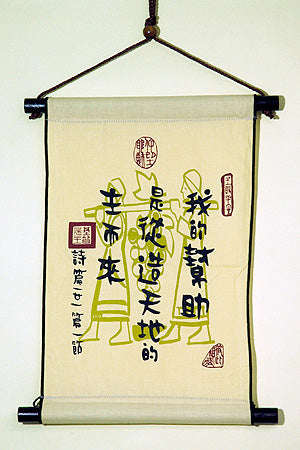 我的幫助
是從造天地的
主而來
詩篇 第一節